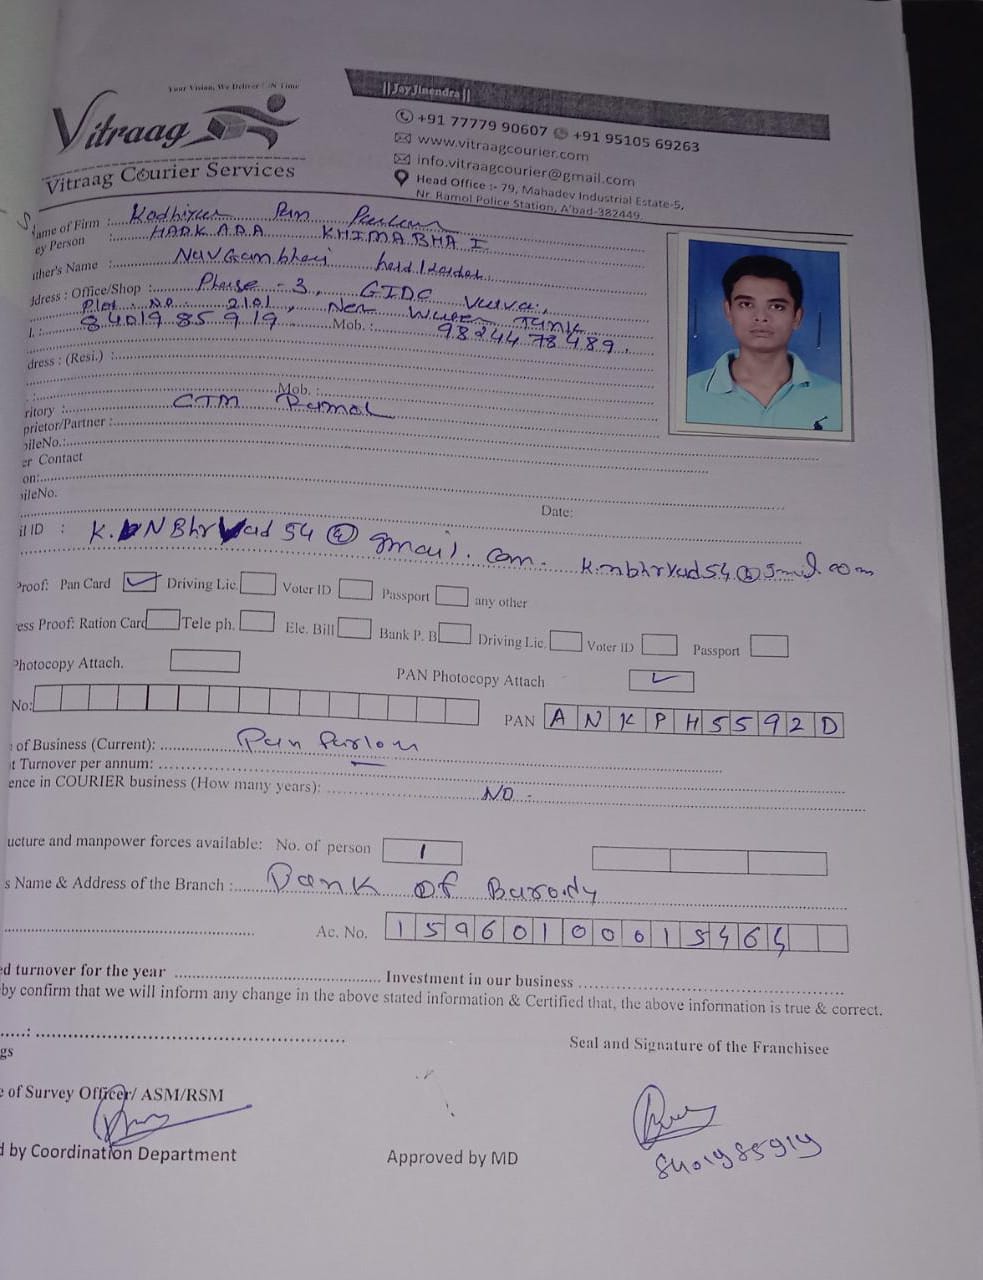 Your Vision, We Deliver ON Time
Vitraag
Vitraag Courier Services
||JayJinendra||
+91 77779 90607 +91 95105 69263
www.vitraagcourier.com
info.vitraagcourier@gmail.com
Head Office :- 79, Mahadev Industrial Estate-5,
Nr. Ramol Police Station, A'bad-382449.
ame of Firm : Pan
ey Person : HARKADA KHIMABHAI
ther's Name :
ddress : Office/Shop : Phase - 3, GIDC
Plot. No 2101,
l. : 8401985919 Mob. : 9824478489.
dress : (Resi.) :
: Mob. :
ritory : CTM
prietor/Partner :
bileNo.:
er Contact
on:
bileNo. Date:
il ID : @ gmail. com.
Proof: Pan Card Driving Lic. Voter ID Passport any other
ess Proof: Ration Card Tele ph. Ele. Bill Bank P. B Driving Lic. Voter ID Passport
Photocopy Attach. PAN Photocopy Attach
No: PAN ANKPH5592D
of Business (Current): Pan Parlour
t Turnover per annum: —
ence in COURIER business (How many years): NO -
ucture and manpower forces available: No. of person 1
s Name & Address of the Branch : Bank of
Ac. No.
ed turnover for the year Investment in our business
by confirm that we will inform any change in the above stated information & Certified that, the above information is true & correct.
Seal and Signature of the Franchisee
gs
e of Survey Officer/ ASM/RSM
d by Coordination Department Approved by MD
8401985919